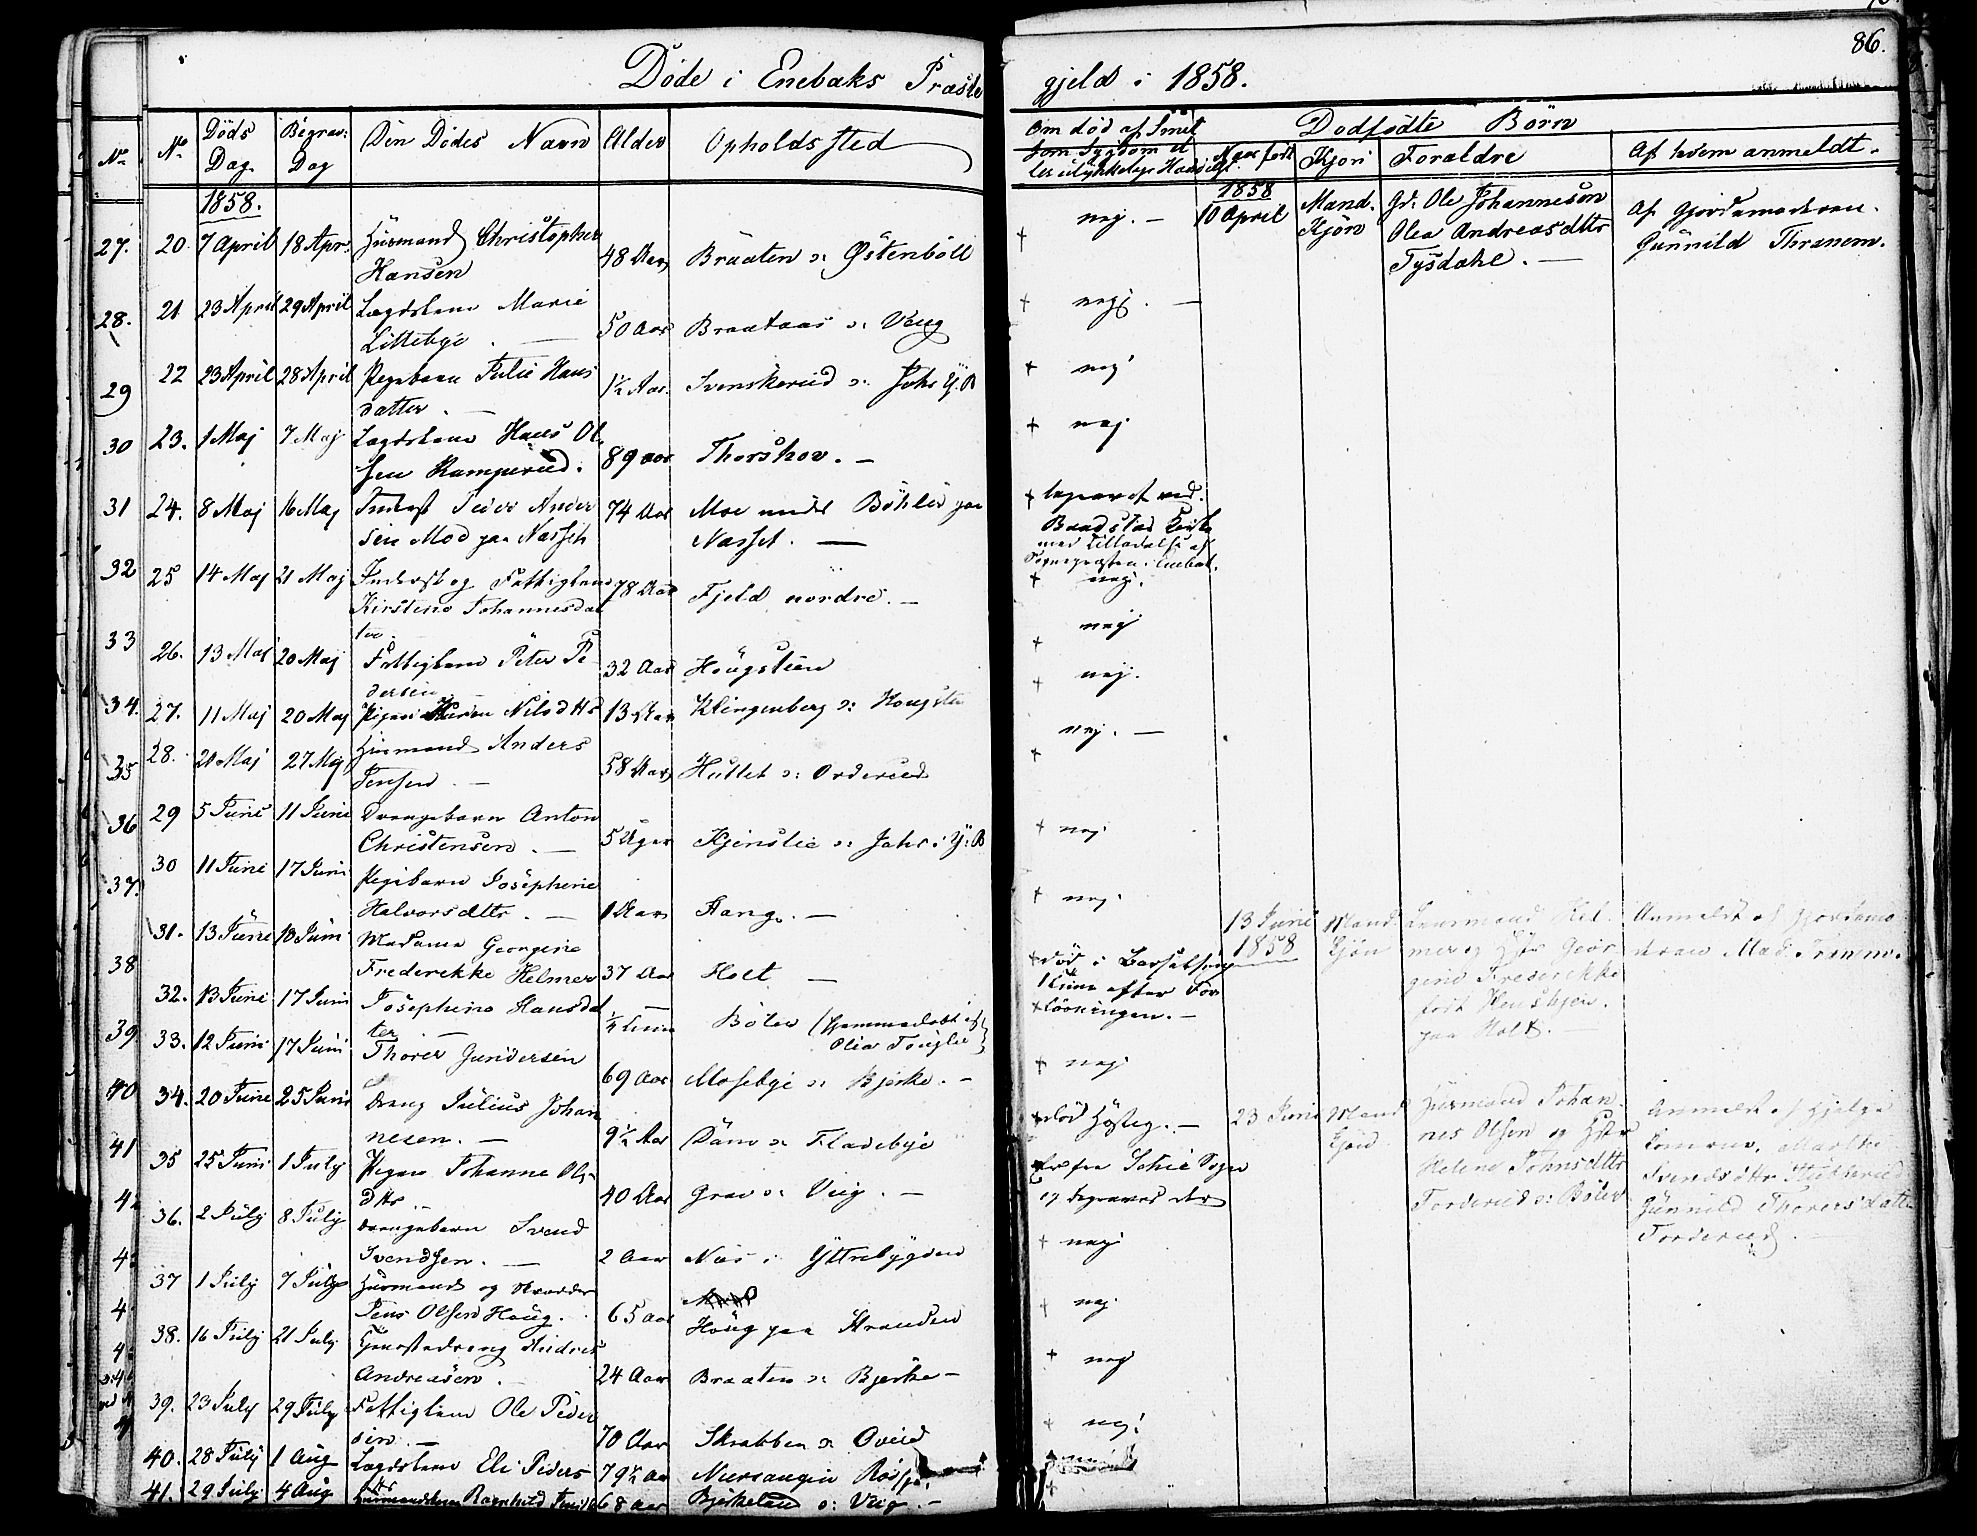 86.
Döde i Enebaks Præste
gjeld i 1858.
No No Döds Dag Begrav: Dag Den Dödes Navn Alder Opholdssted
Om död af Smit
som Sygdom el
ler ulykkelige Hændelse
Dødfödte Börn
Naar födt Kjön Forældre Af hvem anmeldt.
1858.
27. 20. 7 April 18 Apr. Huusmand Christopher
Hansen 48 Aar Braaten u: Østenböll
nej. –
1858
10 April Mand. Kjön
Gr: Ole Johannesen
Olea Andreasdttr
Tysdahl. –
Af Gjordemoderen
Gunnild Thranem.
28. 21 23 April 29 April Lægdslem Marie
Littebye. 50 Aar Braataas u: Veug
nej. –
29 22 23 April 28 April Pigebarn Julie Hans
datter. – 1½ Aar. Svenskerud u: Jahr Y.B
nej
30 23. 1 Maj 7 Maj Lægdslem Hans Ol
sen Ramperud. 89 aar Thorshov. –
nej
31 24. 8 Maj 16 Maj Inderst Peder Ander
sen Moe paa Næsset 74 Aar Moe under Böhler paa
Næsset. –
begravet ved
Baadstad Kirke
med Tilladelse af
Sognepræsten i Enebak.
32 25 14 Maj 21 Maj Inderst og Fattiglem
Kirstine Johannesdat
ter 78 Aar Fjeld nordre. –
nej.
33 26. 13 Maj 20 Maj Fattiglem Peter Pe
dersen 32 Aar Hougsteen
nej
34. 27. 11 Maj 20 Maj Pigen Nilsdttr 13 Aar Klingenberg u: Hougsten
nej.
35 28. 20 Maj 27 Maj Huusmand Anders
Jensen – 58 Aar Huttet u: Orderud
nej. –
36 29 5 Juni 11 Juni Drengebarn Anton
Christensen. – 5 Uger Kjenslie u: Jahr i Y: B
nej
37. 30 11 Juni 17 Juni Pigebarn Josephine
Halvorsdttr. – 1 Aar Aang. –
nej.
38 31. 13 Juni 18 Juni Madame Georgine
Frederekke Helmer 37 Aar Holt –
död i Barselseng
1 Time efter For
lösningen. –
13 Juni
1858 Mand Kjön
Lensmand Hel
mer og Hstr Geor
gine Frederekke
født Heuskjen.
paa Holt. –
Anmeldt af Gjordemo
deren Mad. Tranem.
32. 13 Juni 17 Juni Josephine Hansdat
ter – ½ Time Böler (hjemmedøbt af
Olia Touglie)
39 33. 12 Juni 17 Juni Thorer Gundersen
69 Aar Mosebye u: Bjerke. –
nej
40 34. 20 Juni 25 Juni Dreng Julius Johan
nesen. – 9½ Aar Dam u: Fladebye
död Hastig. –
23 Juni Mand Kjön
Huusmand Johan
nes Olsen og Hstr
Helene Johnsdttr
Torderud u: Böler
Anmeldt af Hjelpe
konerne, Marthe
Svendsdttr Stubberud
Gunnild Thorersdatter
Torderud. –
41 35 25 Juni 1 July Pigen Johanne Ols
dttr. 40 Aar Grav u: Veig. –
Er fra Schie Sogn
og begraved der
4 36. 2 July 8 July Drengebarn Svend
Svendsen. – 2 Aar Næs i Ytrebygden
nej
4 37 1 July 7 July Huusmand og Skrædder
Jens Olsen Houg. 65 aar Houg paa Stranden
nej.
4 38. 16 July 21 July Tjenestedreng Andreas
Andreasen. – 24 Aar Braaten u: Bjerke –
nej
39. 23 July 29 July Fattiglem Ole Peder
sen. – 70 Aar Skrabben u: Oveid
nej!
40. 28 July 1 Aug Lægdslem Eli Peders
dttr 79½ Aar
41. 29 July 4 Aug 68 aar Bjerkeland u: Veig. –